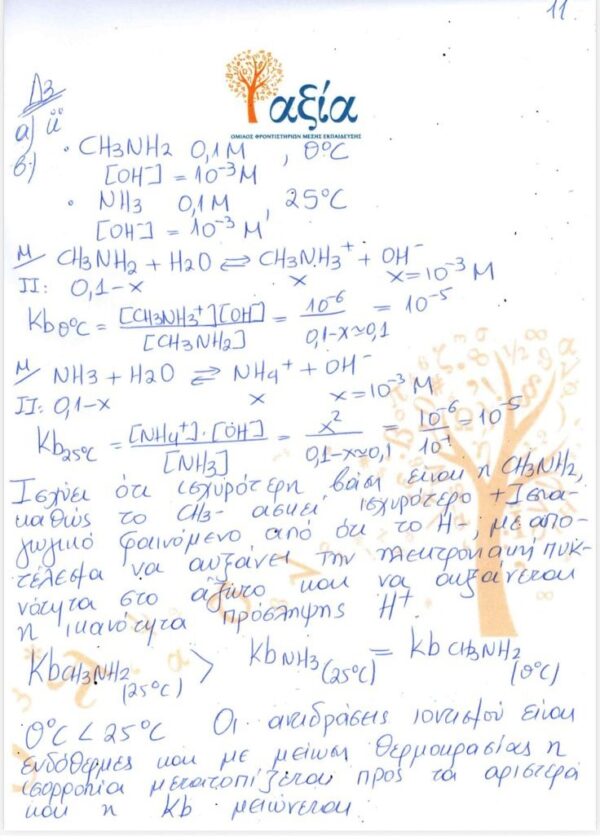 11
αξία
ΟΜΙΛΟΣ ΦΡΟΝΤΙΣΤΗΡΙΩΝ ΜΕΣΗΣ ΕΚΠΑΙΔΕΥΣΗΣ
Δ3
α) ii
β) • CH3NH2 0,1M , θ°C
[OH⁻] = 10⁻³ M
• NH3 0,1M , 25°C
[OH⁻] = 10⁻³ M
M/ CH3NH2 + H2O ⇌ CH3NH3⁺ + OH⁻
II: 0,1-x x x=10⁻³ M
Kbθ°C = [CH3NH3⁺][OH⁻]/[CH3NH2] = 10⁻⁶/0,1-x≃0,1 = 10⁻⁵
M/ NH3 + H2O ⇌ NH4⁺ + OH⁻
II: 0,1-x x x=10⁻³ M
Kb25°C = [NH4⁺]·[OH⁻]/[NH3] = x²/0,1-x≃0,1 = 10⁻⁶/10⁻¹ = 10⁻⁵
Ισχύει ότι ισχυρότερη βάση είναι η CH3NH2,
καθώς το CH3- ασκεί ισχυρότερο +Ι επα-
γωγικό φαινόμενο από ότι το H-, με απο-
τέλεσμα να αυξάνει την ηλεκτρονιακή πυκ-
νότητα στο άζωτο και να αυξάνεται
η ικανότητα πρόσληψης H⁺.
KbCH3NH2 (25°C) > KbNH3 (25°C) = KbCH3NH2 (θ°C)
θ°C < 25°C Οι αντιδράσεις ιοντισμού είναι
ενδόθερμες και με μείωση θερμοκρασίας η
ισορροπία μετατοπίζεται προς τα αριστερά
και η Kb μειώνεται.